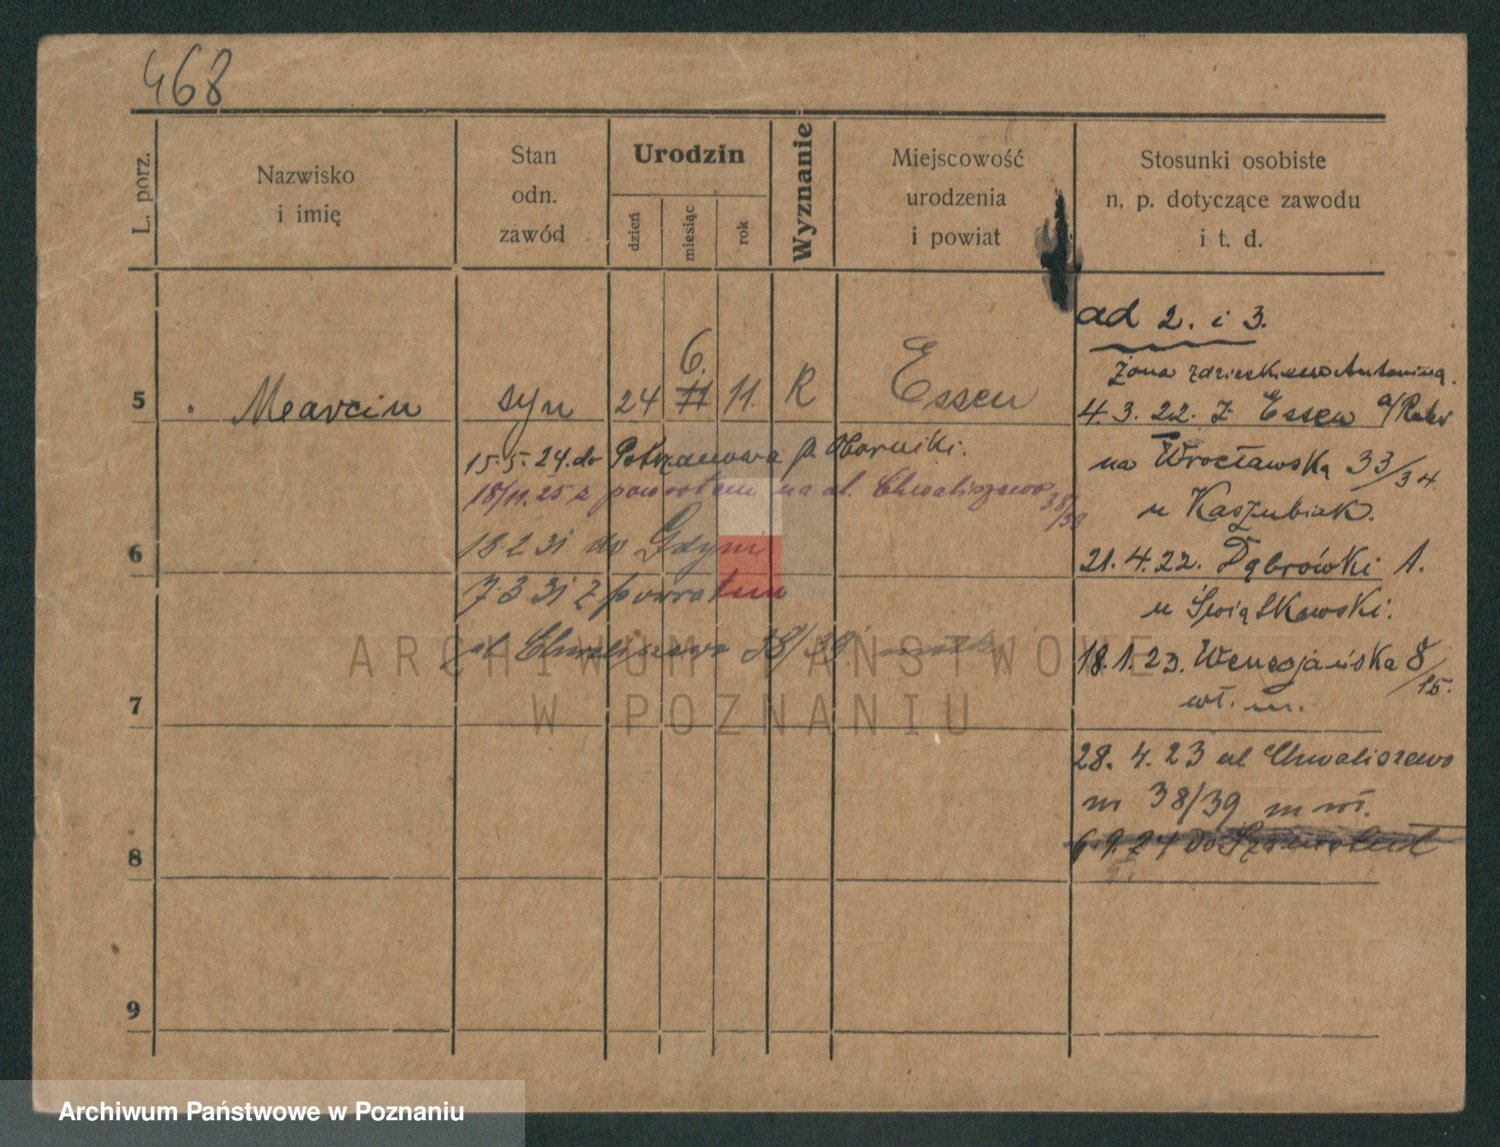 468
L. porz.
Nazwisko
i imię
Stan
odn.
zawód
Urodzin
dzień
miesiąc
rok
Wyznanie
Miejscowość
urodzenia
i powiat
Stosunki osobiste
n. p. dotyczące zawodu
i t. d.
5
Marcin
syn
24
6.
11.
R
Essen
15.5.24. do Potrzanowa p. Oborniki.
18/11.25 z powrotem na ul. Chwaliszewo 38/39
6
18.2 31 do Gdyni
7.3 31 z powrotem
ul. Chwaliszewo 38/39
7
8
9
ad 2. i 3.
żona Antonina.
4.3.22. z Essen a/Ruhr
na Wrocławską 33/34.
u Kaszubiak.
21.4.22. Dąbrówki 1.
u Świątkowski.
18.1.23. Wenecjańska 8/15.
wł. m.
28. 4. 23 ul Chwaliszewo
nr 38/39 m wł.
6.9.24 do
ARCHIWUM PAŃSTWOWE
W POZNANIU
Archiwum Państwowe w Poznaniu